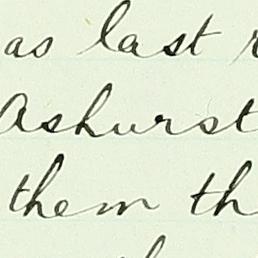 as last
Ashurst
them th